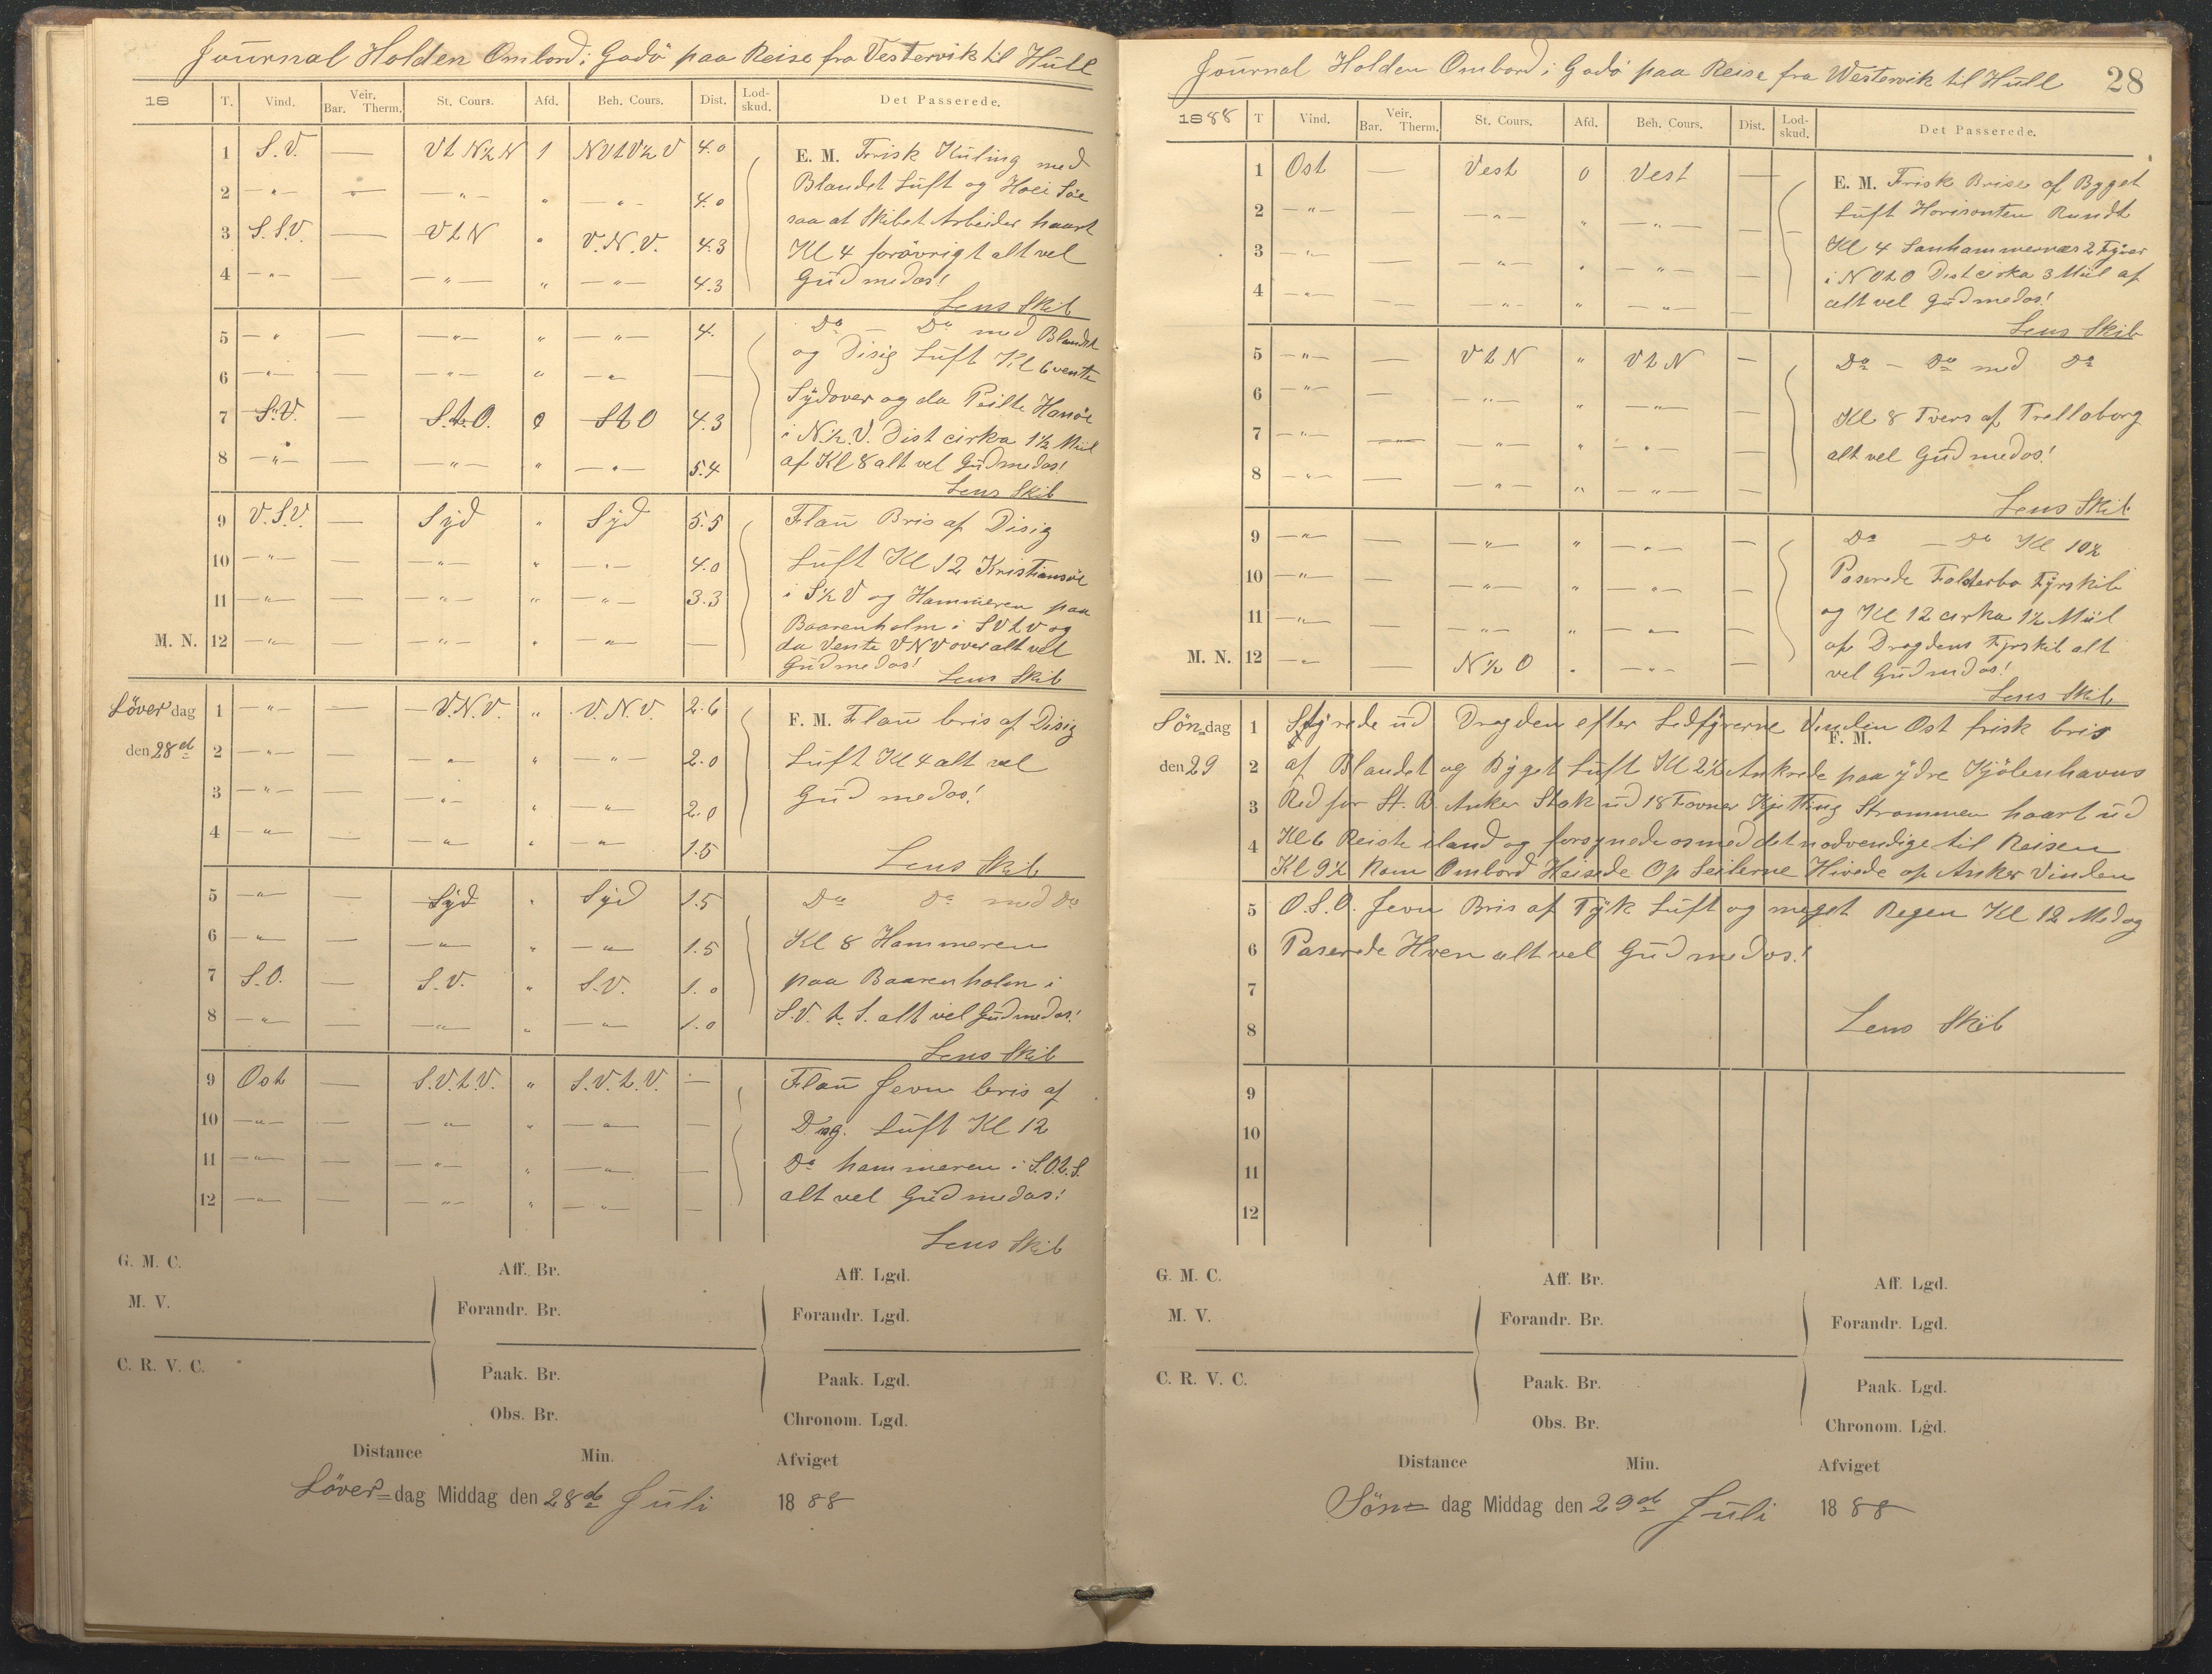 Journal Holden Ombord i Gadö paa Reise fra Vestervik til Hull
18 T. Vind. Veir. Bar. Therm. St. Cours. Afd. Beh. Cours. Dist. Lod-skud. Det Passerede.
1 S.V. — VtN½N 1 NVtV½V 4.0 E. M. Frisk Kuling med
2 —"— — —"— " —"— 4.0 Blandet Luft og Hoei Söe
saa at Skibet Arbeider haart
3 S.S.V. — VtN " V.N.V. 4.3 Kl 4 forövrigt alt vel
4 —"— — —"— " —"— 4.3 Gud med os!
Lens Skib
5 —"— — —"— " —"— 4. Do — Do med Blandet
6 —"— — —"— " —"— — og Disig Luft Kl 6 vente
Sydover og da Peilte Hanöe
7 S.V. — S.t.O. 0 StO 4.3 i N.½.V. Dist cirka 1½ Miil
8 —"— — —"— " —"— 5.4 af Kl 8 alt vel Gud med os!
Lens Skib
9 V.S.V. — Syd " Syd 5.5 Flau Bris af Disig
10 —"— — —"— " —"— 4.0 Luft Kl 12 Kristiansöe
11 —"— — —"— " —"— 3.3 i S½V og Hammeren paa
Baarenholm i SVtV og
M. N. 12 —"— — —"— " —"— — da Vente VNV over alt vel
Gud med os! Lens Skib
Löver dag 1 —"— — V.N.V. " V.N.V. 2.6 F. M. Flau bris af Disig
den 28de 2 —"— — —"— " —"— 2.0 Luft Kl 4 alt vel
3 —"— — —"— " —"— 2.0 Gud med os!
4 —"— — —"— " —"— 1.5
Lens Skib
5 —"— — Syd " Syd 1.5 Do Do med Do
6 —"— — —"— " —"— 1.5 Kl 8 Hammeren
7 S.O. — S.V. " S.V. 1.0 paa Baarenholm i
8 —"— — —"— " —"— 1.0 S.V.t.S. alt vel Gud med os!
Lens Skib
9 Ost — S.V.t.V. " S.V.t.V. — Flau Jevn bris af
10 —"— — —"— " —"— — Disig. Luft Kl 12
11 —"— — —"— " —"— — Do hammeren i S.O.t.S.
12 —"— — —"— " —"— — alt vel Gud med os!
Lens Skib
G. M. C. Aff. Br. Aff. Lgd.
M. V. Forandr. Br. Forandr. Lgd.
C. R. V. C. Paak. Br. Paak. Lgd.
Obs. Br. Chronom. Lgd.
Distance Min. Afviget
Löver=dag Middag den 28de Juli 1888
Journal Holden Ombord i Gadö paa Reise fra Westervik til Hull 28
1888 T Vind. Veir. Bar. Therm. St. Cours. Afd. Beh. Cours. Dist. Lod-skud. Det Passerede.
1 Ost — Vest 0 Vest — E. M. Frisk Brise af Bygget
2 —"— — —"— " —"— — Luft Horisonten Rundt
3 —"— — —"— " —"— — Kl 4 Sanhammernæs 2 Fyrer
i NOtO Dist cirka 3 Miil af
4 —"— — —"— " —"— — alt vel Gud med os!
Lens Skib
5 —"— — VtN " VtN — Do — Do med Do
6 —"— — —"— " —"— —
7 —"— — —"— " —"— — Kl. 8 Tvers af Trelleborg
8 —"— — —"— " —"— — alt vel Gud med os!
Lens Skib
9 —"— — —"— " —"— — Do — Do Kl 10½
10 —"— — —"— " —"— — Paserede Falsterbo Fyrskib
11 —"— — —"— " —"— — og Kl 12 cirka 1½ Miil
af Dragdens Fyrskib alt
M. N. 12 —"— — N½O " —"— — vel Gud med os!
Lens Skib
Sön=dag 1 Styrede ud Dragden efter Ledfyrerne Vinden Ost frisk bris
F. M.
den 29 2 af Blandet og Byget Luft Kl 2½ Ankrede paa ydre Kjöbenhavns
3 Red for St. B. Anker Stak ud 18 Favner Kjetting Strømmen haart ud
4 Kl 6 Reiste iland og forsynede os med det nodvendige til Reisen
Kl 9½ kom Ombord Heisede Op Seilerne Hivede op Anker Vinden
5 O.S.O. Jevn Bris af Tyk Luft og meget Regen Kl 12 Medag
6 Paserede Hven alt vel Gud med os!
7
8 Lens Skib
9
10
11
12
G. M. C. Aff. Br. Aff. Lgd.
M. V. Forandr. Br. Forandr. Lgd.
C. R. V. C. Paak. Br. Paak. Lgd.
Obs. Br. Chronom. Lgd.
Distance Min. Afviget
Sön= dag Middag den 29de Juli 1888